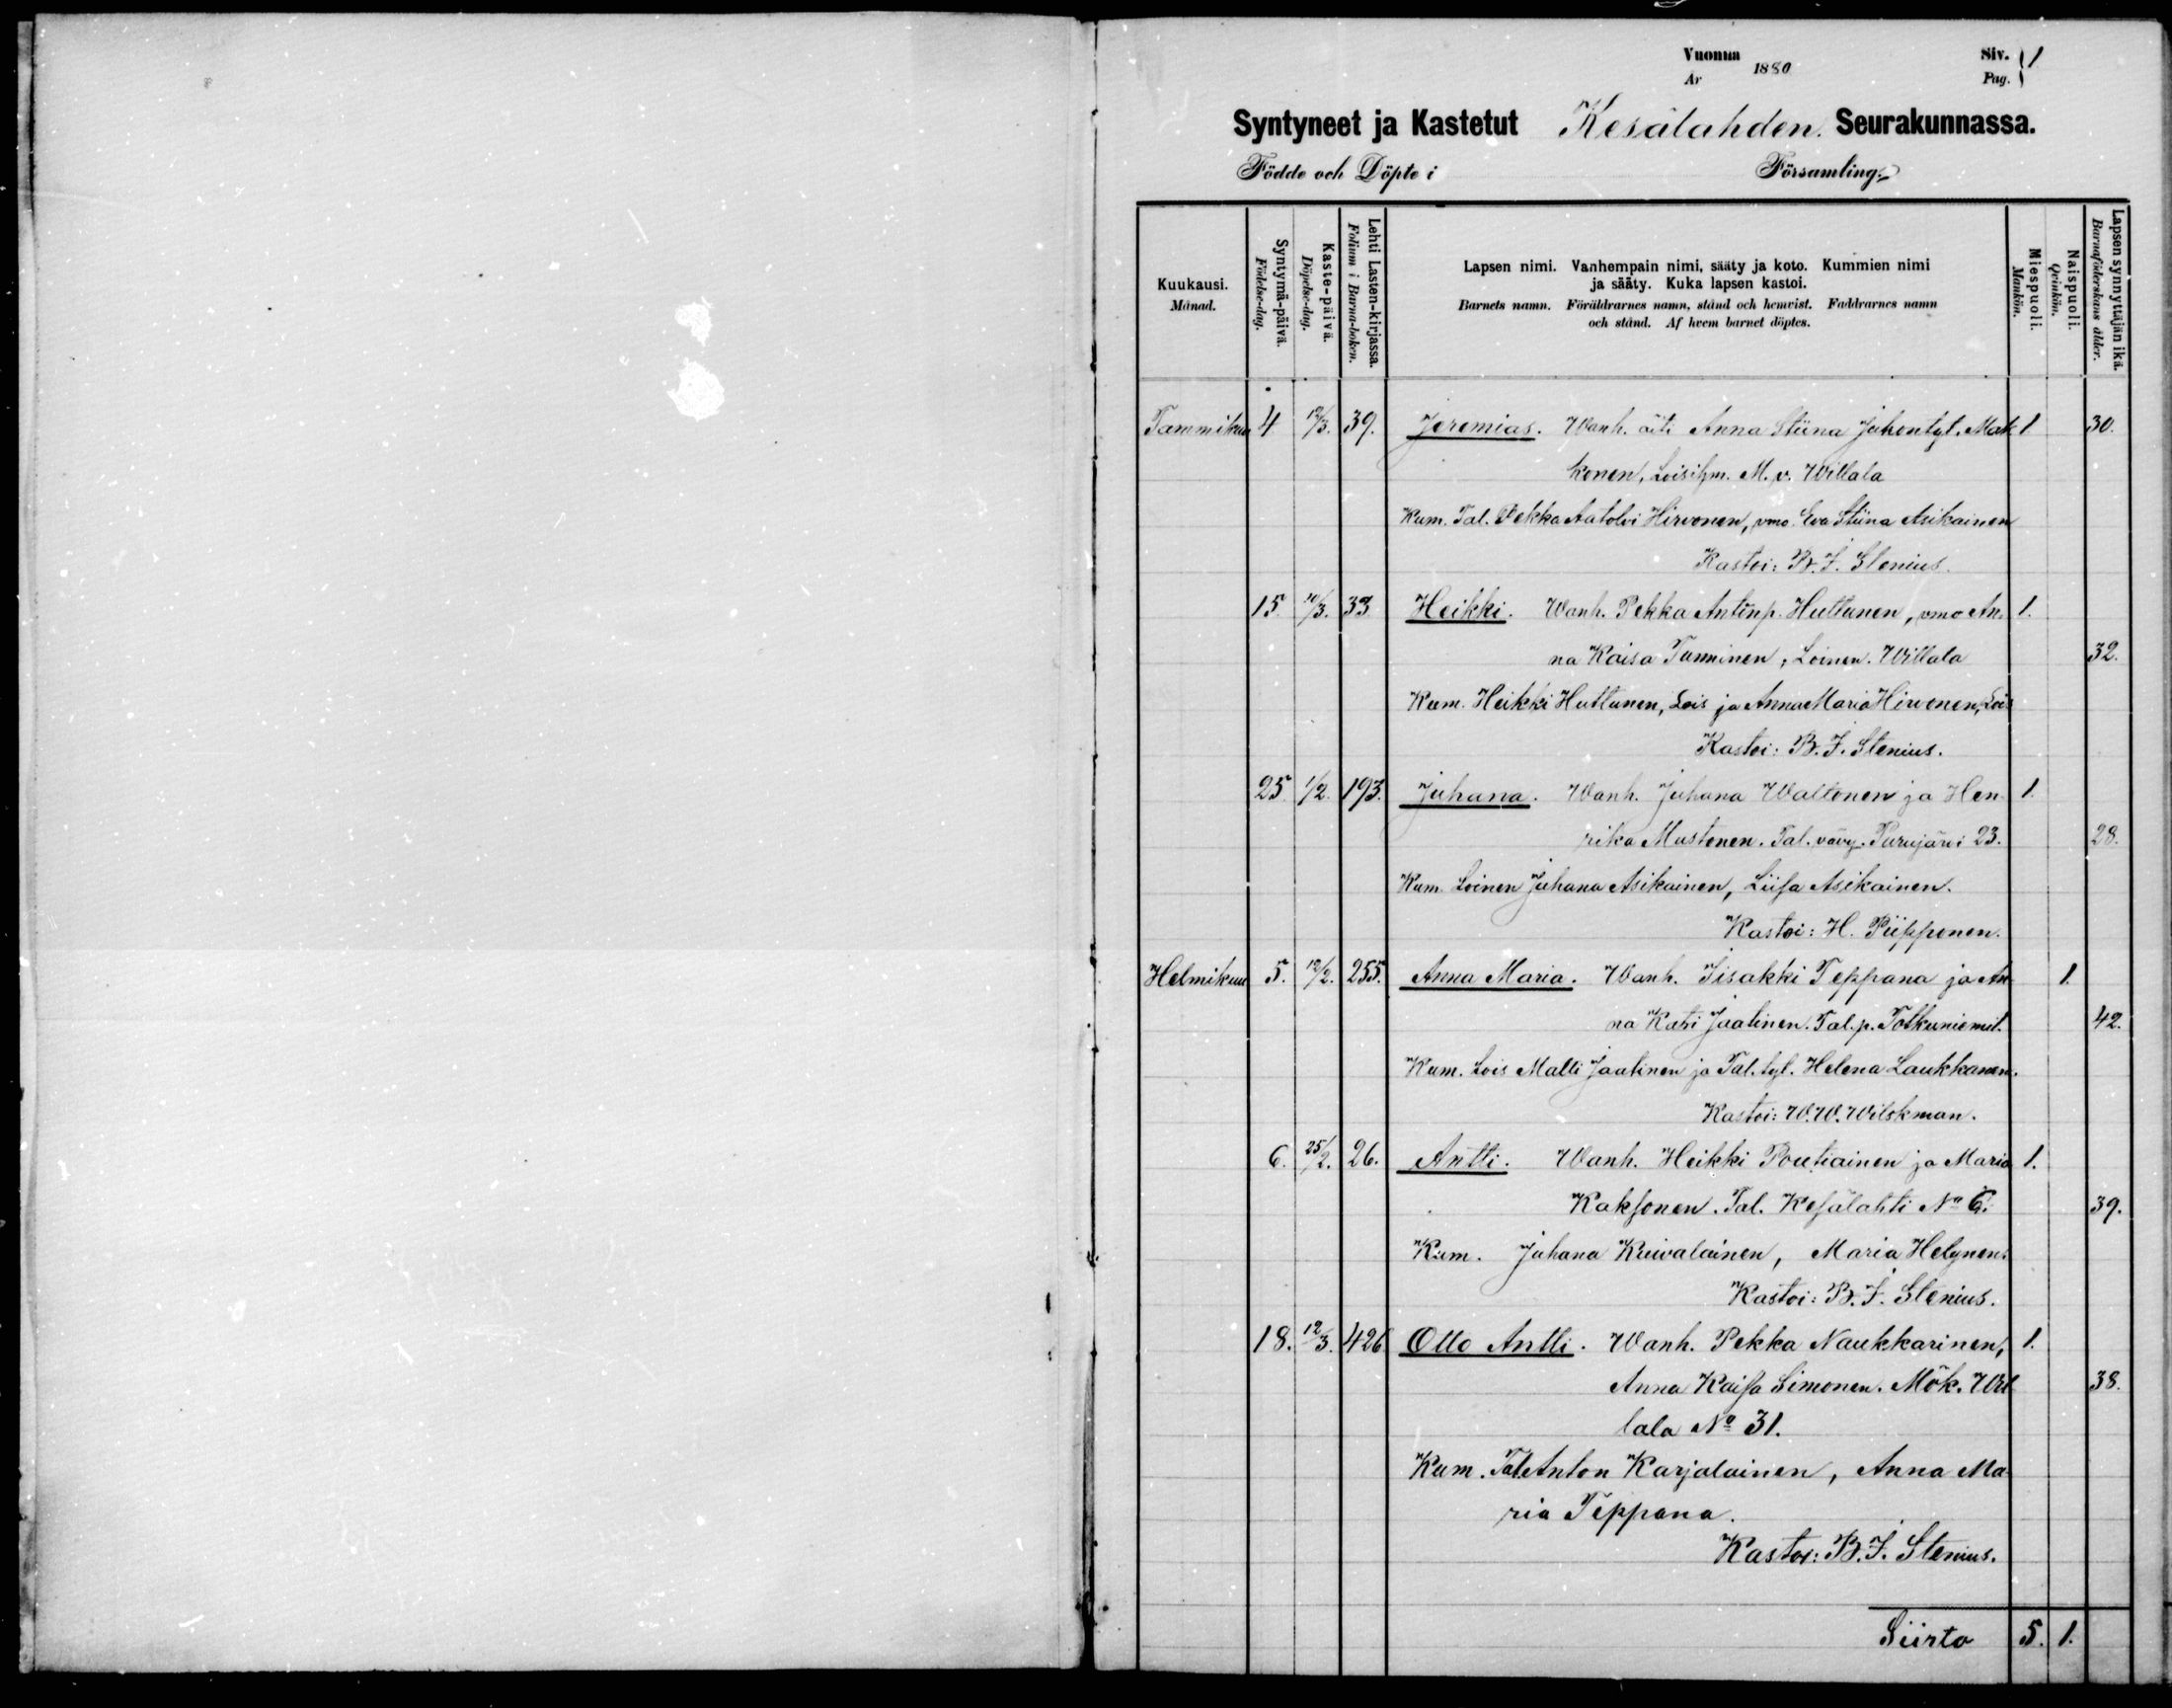 Vuonna 1880 Siv. 1
År Pag.
Syntyneet ja Kastetut Kesälahden Seurakunnassa.
Födde och Döpte i Församling.
Kuukausi.
Månad.
Syntymä-päivä.
Födelse-dag.
Kaste-päivä.
Döpelse-dag.
Lehti Lasten-kirjassa.
Folium i Barna-boken.
Lapsen nimi. Vanhempain nimi, sääty ja koto. Kummien nimi
ja sääty. Kuka lapsen kastoi.
Barnets namn. Föräldrarnes namn, stånd och hemvist. Faddrarnes namn
och stånd. Af hvem barnet döptes.
Miespuoli.
Mankön.
Naispuoli.
Qvinkön.
Lapsen synnyttäjän ikä.
Barnaföderskans ålder.
Tammikuu 4 12/3. 39. Jeremias. Wanh. äiti Anna Stiina Juhontyt. Mak 1 30.
konen, Loisihm. M. v. Willala
Kum. Tal. Pekka Aatolvi Hirvonen, vmo. Eva Stiina Asikainen
Kastoi: B. J. Stenius.
15. 10/3. 33 Heikki. Wanh. Pekka Antinp. Huttunen, vmo An. 1.
na Kaisa Tanninen, Loinen. Willala 32.
Kum. Heikki Huttunen, Lois ja Anna Maria Hirvonen, Lois
Kastoi: B. J. Stenius.
25 1/2. 193. Juhana. Wanh. Juhana Waltonen ja Hen 1.
rika Mustonen. Tal. vävy. Purujärvi 23. 28.
Kum. Loinen Juhana Asikainen, Liisa Asikainen.
Kastoi: H. Piipponen.
Helmikuu 5. 12/2. 255. Anna Maria. Wanh. Iisakki Teppana ja An 1.
na Katri Jaatinen. Tal. p. Totkuniemit. 42.
Kum. Lois Matti Jaatinen ja Tal. tyt. Helena Laukkanen.
Kastoi: W. W. Wilskman.
6. 25/2. 26. Antti. Wanh. Heikki Poutiainen ja Maria 1.
Kaksonen. Tal. Kesälahti No 6. 39.
Kum. Juhana Kuivalainen, Maria Helynen.
Kastoi: B. J. Stenius.
18. 12/3. 426 Otto Antti. Wanh. Pekka Naukkarinen, 1.
Anna Kaisa Simonen. Mök. Wil 38.
lala No 31.
Kum. Tal. Anton Karjalainen, Anna Ma
ria Teppana.
Kastoi: B. J. Stenius.
Siirto 5. 1.